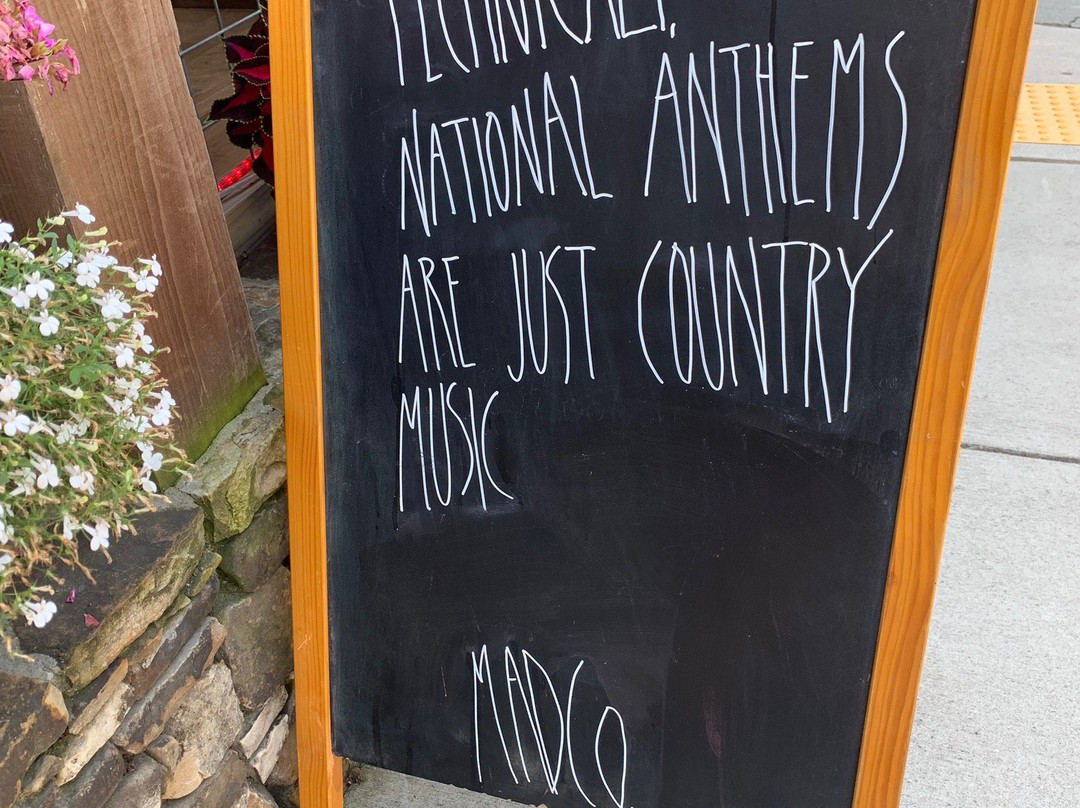 TECHNICALLY,
NATIONAL ANTHEMS
ARE JUST COUNTRY
MUSIC
MADCO